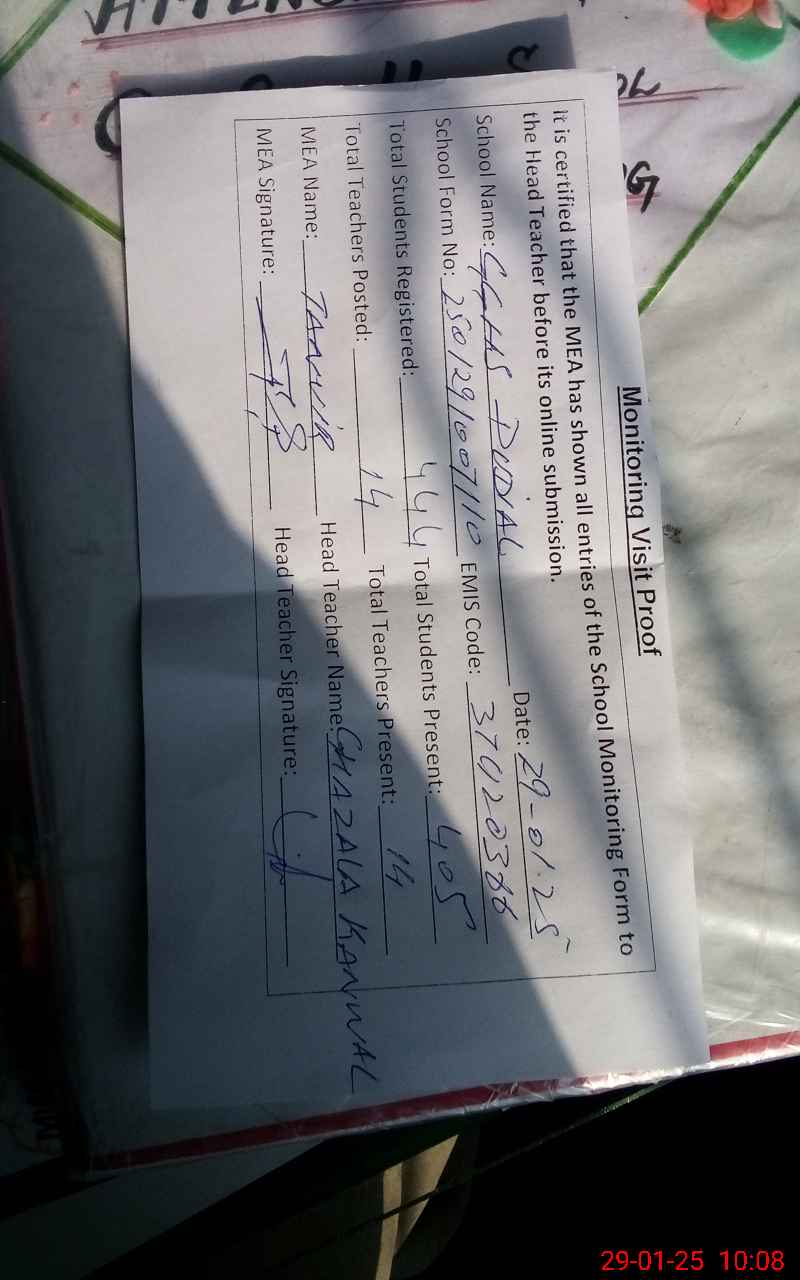 Monitoring Visit Proof
It is certified that the MEA has shown all entries of the School Monitoring Form to
the Head Teacher before its online submission.
School Name: GGHS DUDIAL Date: 29-01-25
School Form No: 2501291007110 EMIS Code: 37420366
Total Students Registered: 444 Total Students Present: 405
Total Teachers Posted: 14 Total Teachers Present: 14
MEA Name: TANVIR Head Teacher Name: GHAZALA KANWAL
MEA Signature: Head Teacher Signature:
29-01-25 10:08